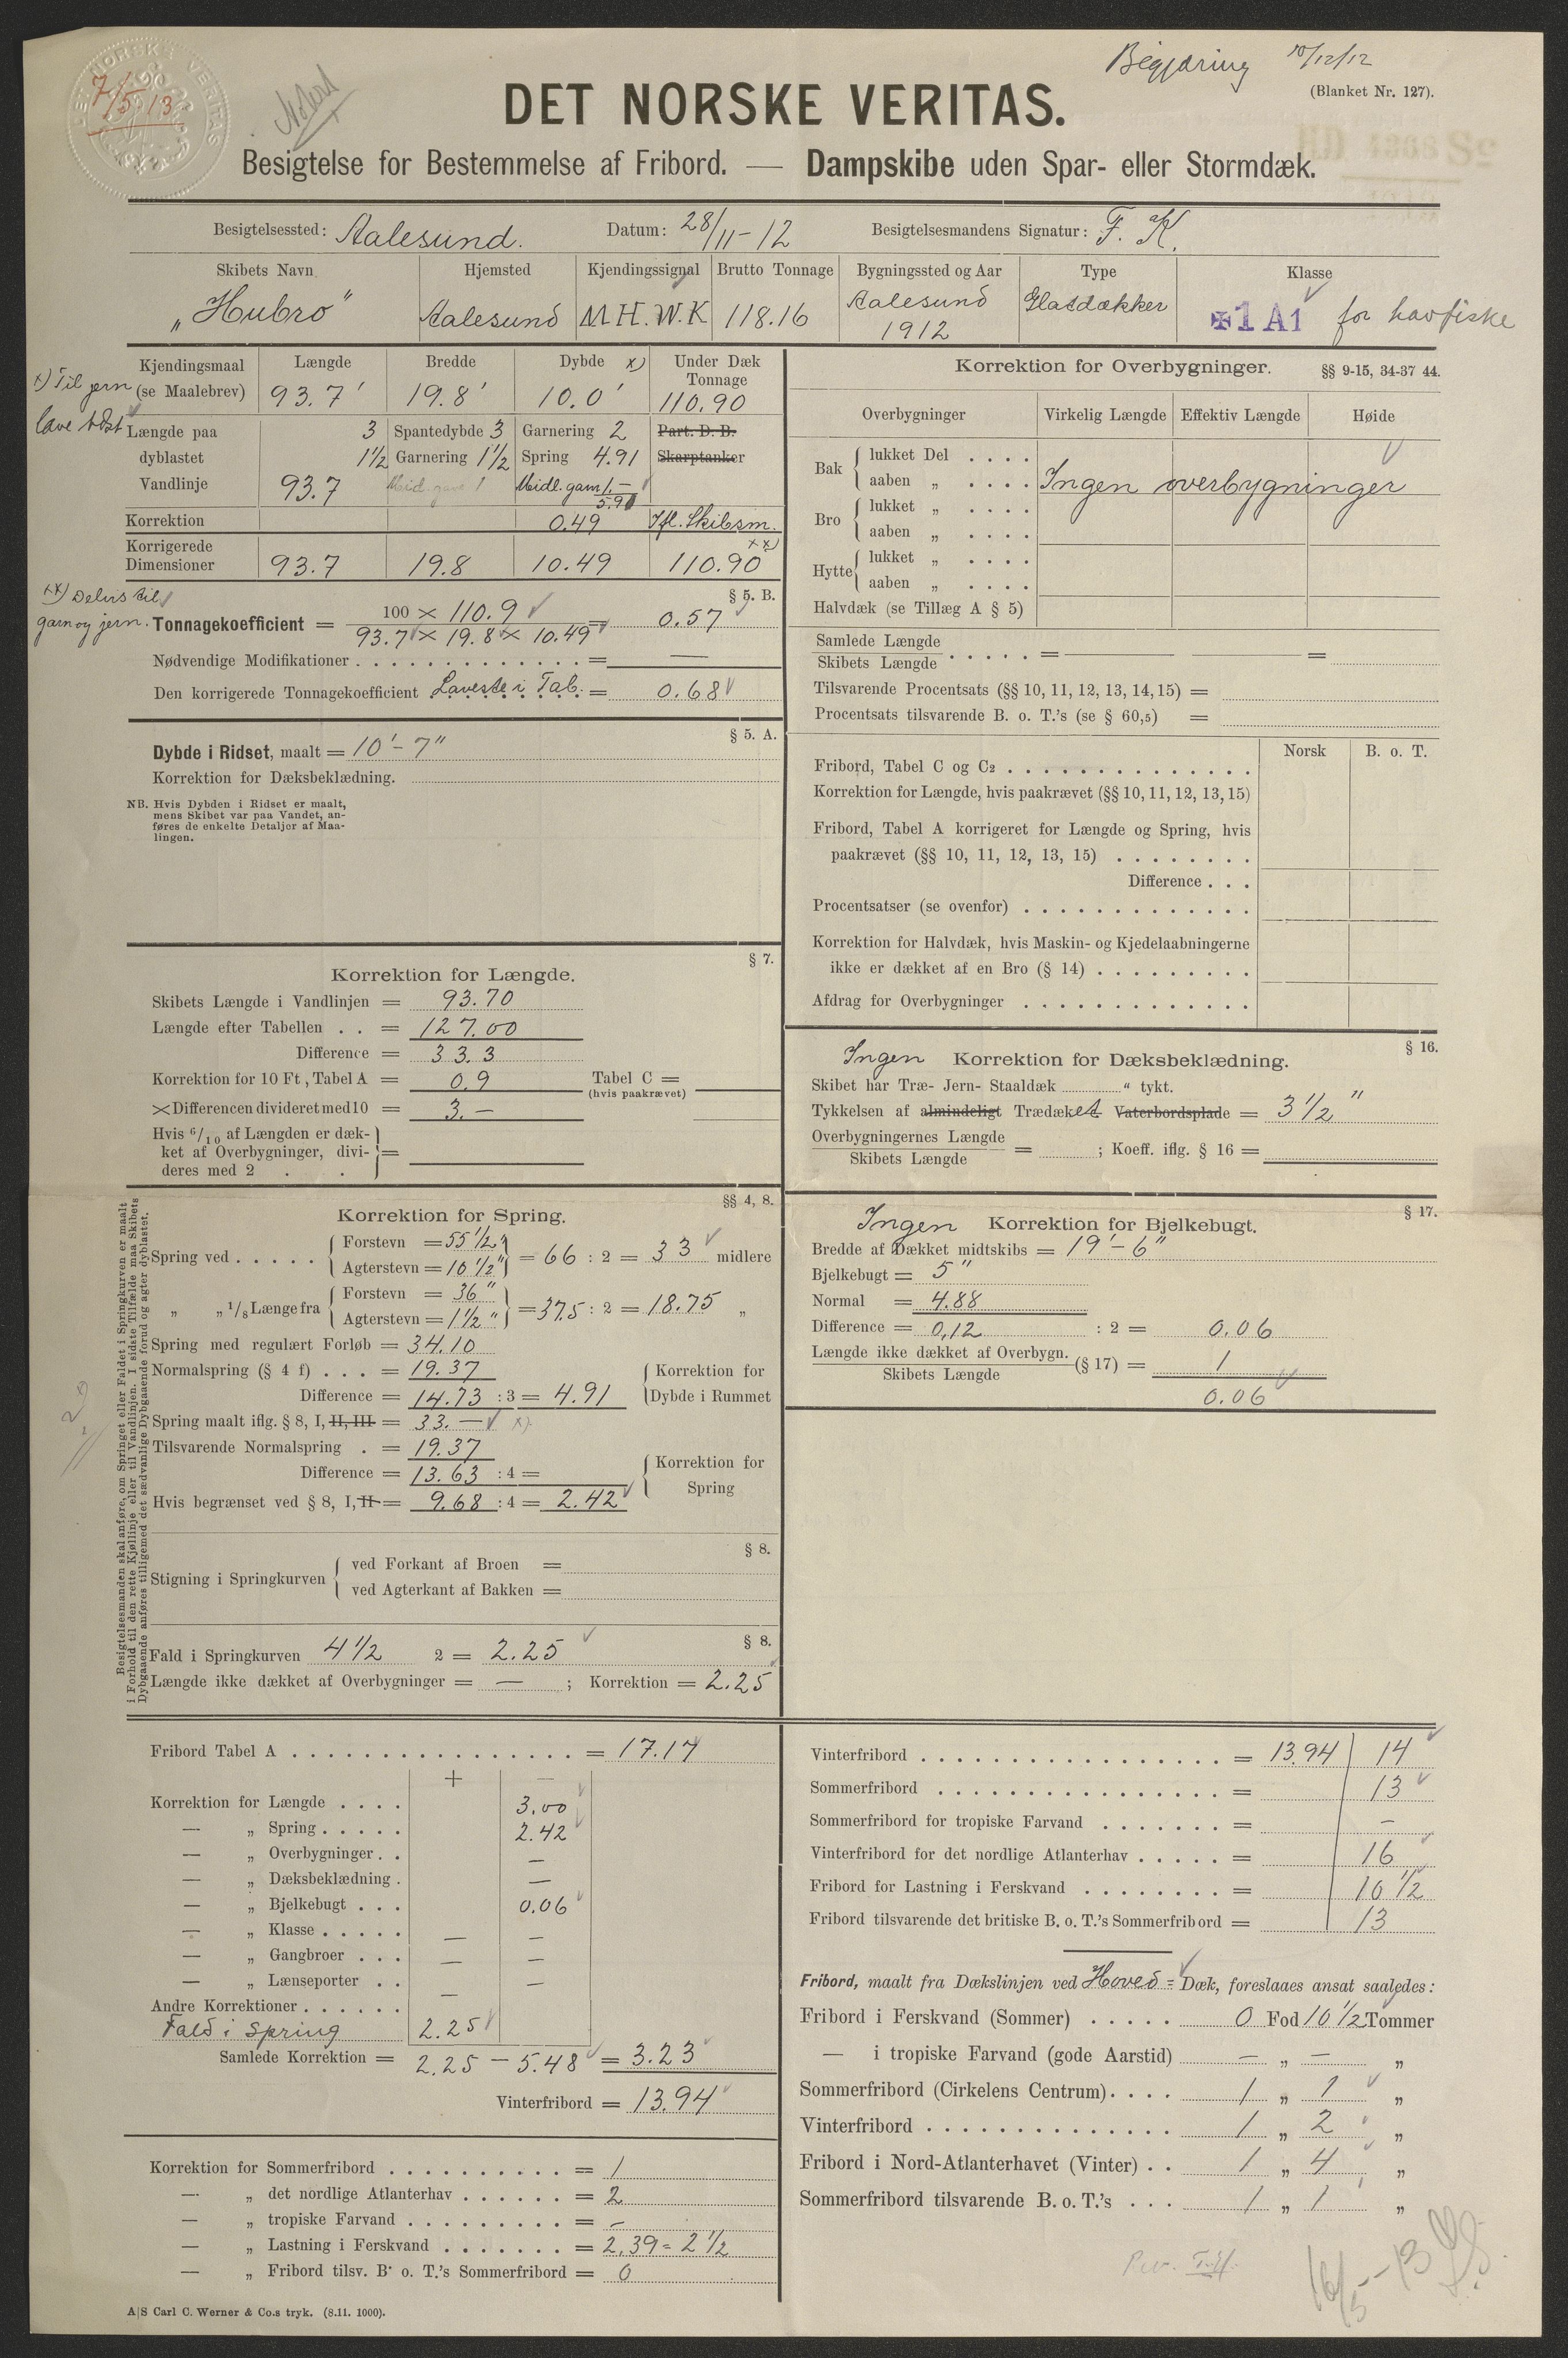 Begjæring 10/12/12
(Blanket Nr. 127).
DET NORSKE VERITAS
7/5 13
Noterd
DET NORSKE VERITAS.
Besigtelse for Bestemmelse af Fribord. — Dampskibe uden Spar- eller Stormdæk.
Besigtelsessted: Aalesund. Datum: 28/11-12 Besigtelsesmandens Signatur: F. K.
Skibets Navn Hjemsted Kjendingssignal Brutto Tonnage Bygningssted og Aar Type Klasse
„Hubro" Aalesund M.H.W.K 118.16 Aalesund 1912 Glatdækker 1 A1 for havfiske
Kjendingsmaal (se Maalebrev) Længde Bredde Dybde x) Under Dæk Tonnage
93.7' 19.8' 10.0' 110.90
x) Til jern
Længde paa 3 Spantedybde 3 Garnering 2 Part. D. B.
dyblastet 1½ Garnering 1½ Spring 4.91 Skarptanker
Vandlinje 93.7 Midl. garn 1.—
5.91
Korrektion 0.49 Ifl. Skibsm.
xx)
Korrigerede
Dimensioner 93.7 19.8 10.49 110.90
xx) Delvis til
garn og jern.
§ 5. B.
Tonnagekoefficient = 100 × 110.9 / 93.7 × 19.8 × 10.49 = 0.57
Nødvendige Modifikationer = —
Den korrigerede Tonnagekoefficient Laveste i Tab. = 0.68
§ 5. A.
Dybde i Ridset, maalt = 10'-7"
Korrektion for Dæksbeklædning.
NB. Hvis Dybden i Ridset er maalt,
mens Skibet var paa Vandet, an-
føres de enkelte Detaljer af Maa-
lingen.
§ 7.
Korrektion for Længde.
Skibets Længde i Vandlinjen = 93.70
Længde efter Tabellen . . = 127.00
Difference = 33.3
Korrektion for 10 Ft, Tabel A = 0.9 Tabel C =
(hvis paakrævet)
× Differencen divideret med 10 = 3.—
Hvis 6/10 af Længden er dæk-
ket af Overbygninger, divi- =
deres med 2 . .
§§ 4, 8.
Korrektion for Spring.
Spring ved . . . . . Forstevn = 55½" = 66 : 2 = 33 midlere
Agterstevn = 10½"
„ „ 1/8 Længe fra Forstevn = 36" = 37.5 : 2 = 18.75 „
Agterstevn = 1½"
Spring med regulært Forløb = 34.10
Normalspring (§ 4 f) . . . = 19.37 Korrektion for
Difference = 14.73 : 3 = 4.91 Dybde i Rummet
Spring maalt iflg. § 8, I, II, III = 33.— x)
Tilsvarende Normalspring . = 19.37
Difference = 13.63 : 4 = Korrektion for
Hvis begrænset ved § 8, I, II = 9.68 : 4 = 2.42 Spring
Besigtelsesmanden skal anføre, om Springet eller Faldet i Springkurven er maalt
i Forhold til den rette Kjøllinje eller til Vandlinjen. I sidste Tilfælde maa Skibets
Dybgaaende anføres tilligemed det sædvanlige Dybgaaende forud og agter dyblastet.
§ 8.
Stigning i Springkurven ved Forkant af Broen =
ved Agterkant af Bakken =
§ 8.
Fald i Springkurven 4½ 2 = 2.25
Længde ikke dækket af Overbygninger = — ; Korrektion = 2.25
Fribord Tabel A = 17.17
+ —
Korrektion for Længde . . . . 3.00
— „ Spring . . . . . 2.42
— „ Overbygninger . . —
— „ Dæksbeklædning . —
— „ Bjelkebugt . . . 0.06
— „ Klasse . . . . . — —
— „ Gangbroer . . . — —
— „ Lænseporter . . — —
Andre Korrektioner . . . . . .
Fald i Spring 2.25
Samlede Korrektion = 2.25 - 5.48 = 3.23
Vinterfribord = 13.94
Korrektion for Sommerfribord = 1
— „ det nordlige Atlanterhav = 2
— „ tropiske Farvand = –
— „ Lastning i Ferskvand = 2.39 = 2½
— „ Fribord tilsv. B. o. T.'s Sommerfribord = 0
A|S Carl C. Werner & Co.s tryk. (8.11. 1000).
Korrektion for Overbygninger. §§ 9-15, 34-37 44.
Overbygninger Virkelig Længde Effektiv Længde Høide
Bak lukket Del . . . .
aaben „ . . . . Ingen overbygninger
Bro lukket „ . . . .
aaben „ . . . .
Hytte lukket „ . . . .
aaben „ . . . .
Halvdæk (se Tillæg A § 5)
Samlede Længde
Skibets Længde . . . . . = =
Tilsvarende Procentsats (§§ 10, 11, 12, 13, 14, 15) =
Procentsats tilsvarende B. o. T.'s (se § 60,5) =
Norsk B. o. T.
Fribord, Tabel C og C2
Korrektion for Længde, hvis paakrævet (§§ 10, 11, 12, 13, 15)
Fribord, Tabel A korrigeret for Længde og Spring, hvis
paakrævet (§§ 10, 11, 12, 13, 15)
Difference . . .
Procentsatser (se ovenfor)
Korrektion for Halvdæk, hvis Maskin- og Kjedelaabningerne
ikke er dækket af en Bro (§ 14)
Afdrag for Overbygninger
§ 16.
Ingen Korrektion for Dæksbeklædning.
Skibet har Træ- Jern- Staaldæk “ tykt.
Tykkelsen af almindeligt Trædæket Vaterbordsplade = 3½"
Overbygningernes Længde
Skibets Længde = ; Koeff. iflg. § 16 =
§ 17.
Ingen Korrektion for Bjelkebugt.
Bredde af Dækket midtskibs = 19'-6"
Bjelkebugt = 5"
Normal = 4.88
Difference = 0,12 : 2 = 0.06
Længde ikke dækket af Overbygn.
Skibets Længde (§ 17) = 1
0.06
Vinterfribord = 13.94 14
Sommerfribord = 13
Sommerfribord for tropiske Farvand = –
Vinterfribord for det nordlige Atlanterhav = 16
Fribord for Lastning i Ferskvand = 10½
Fribord tilsvarende det britiske B. o. T.'s Sommerfribord = 13
Fribord, maalt fra Dækslinjen ved Hoved = Dæk, foreslaaes ansat saaledes:
Fribord i Ferskvand (Sommer) 0 Fod 10½ Tommer
— i tropiske Farvand (gode Aarstid) — „ — „
Sommerfribord (Cirkelens Centrum) 1 „ 1 „
Vinterfribord 1 „ 2 „
Fribord i Nord-Atlanterhavet (Vinter) 1 „ 4 „
Sommerfribord tilsvarende B. o. T.'s 1 „ 1 „
16/5-13